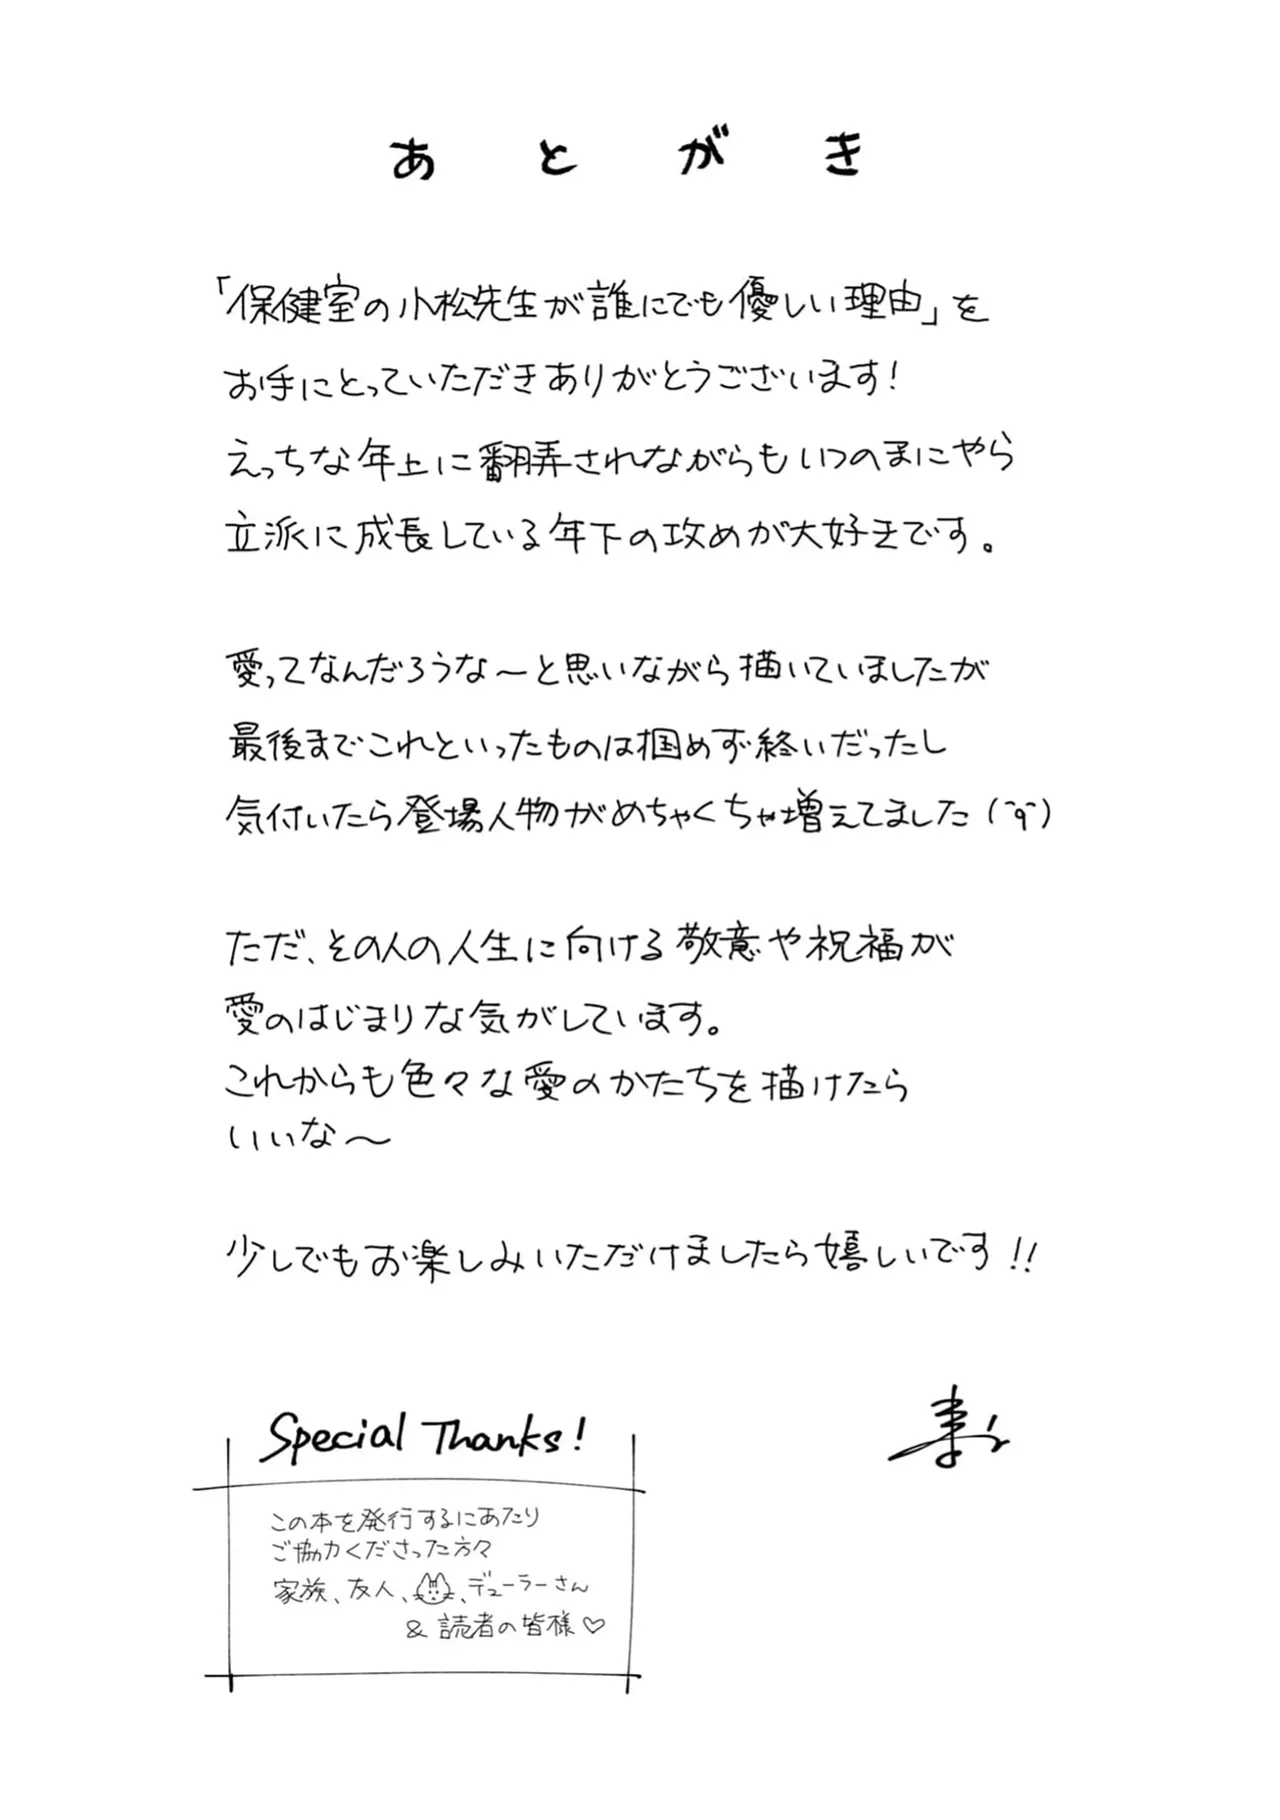 あとがき
「保健室の小松先生が誰にでも優しい理由」を
お手にとっていただきありがとうございます！
えっちな年上に翻弄されながらもいつのまにやら
立派に成長している年下の攻めが大好きです。
愛ってなんだろうな〜と思いながら描いていましたが
最後までこれといったものは掴めず終いだったし
気付いたら登場人物がめちゃくちゃ増えてました(^q^)
ただ、その人の人生に向ける敬意や祝福が
愛のはじまりな気がしています。
これからも色々な愛のかたちを描けたら
いいな〜
少しでもお楽しみいただけましたら嬉しいです!!
Special Thanks!
この本を発行するにあたり
ご協力くださった方々
家族、友人、、デューラーさん
& 読者の皆様♡